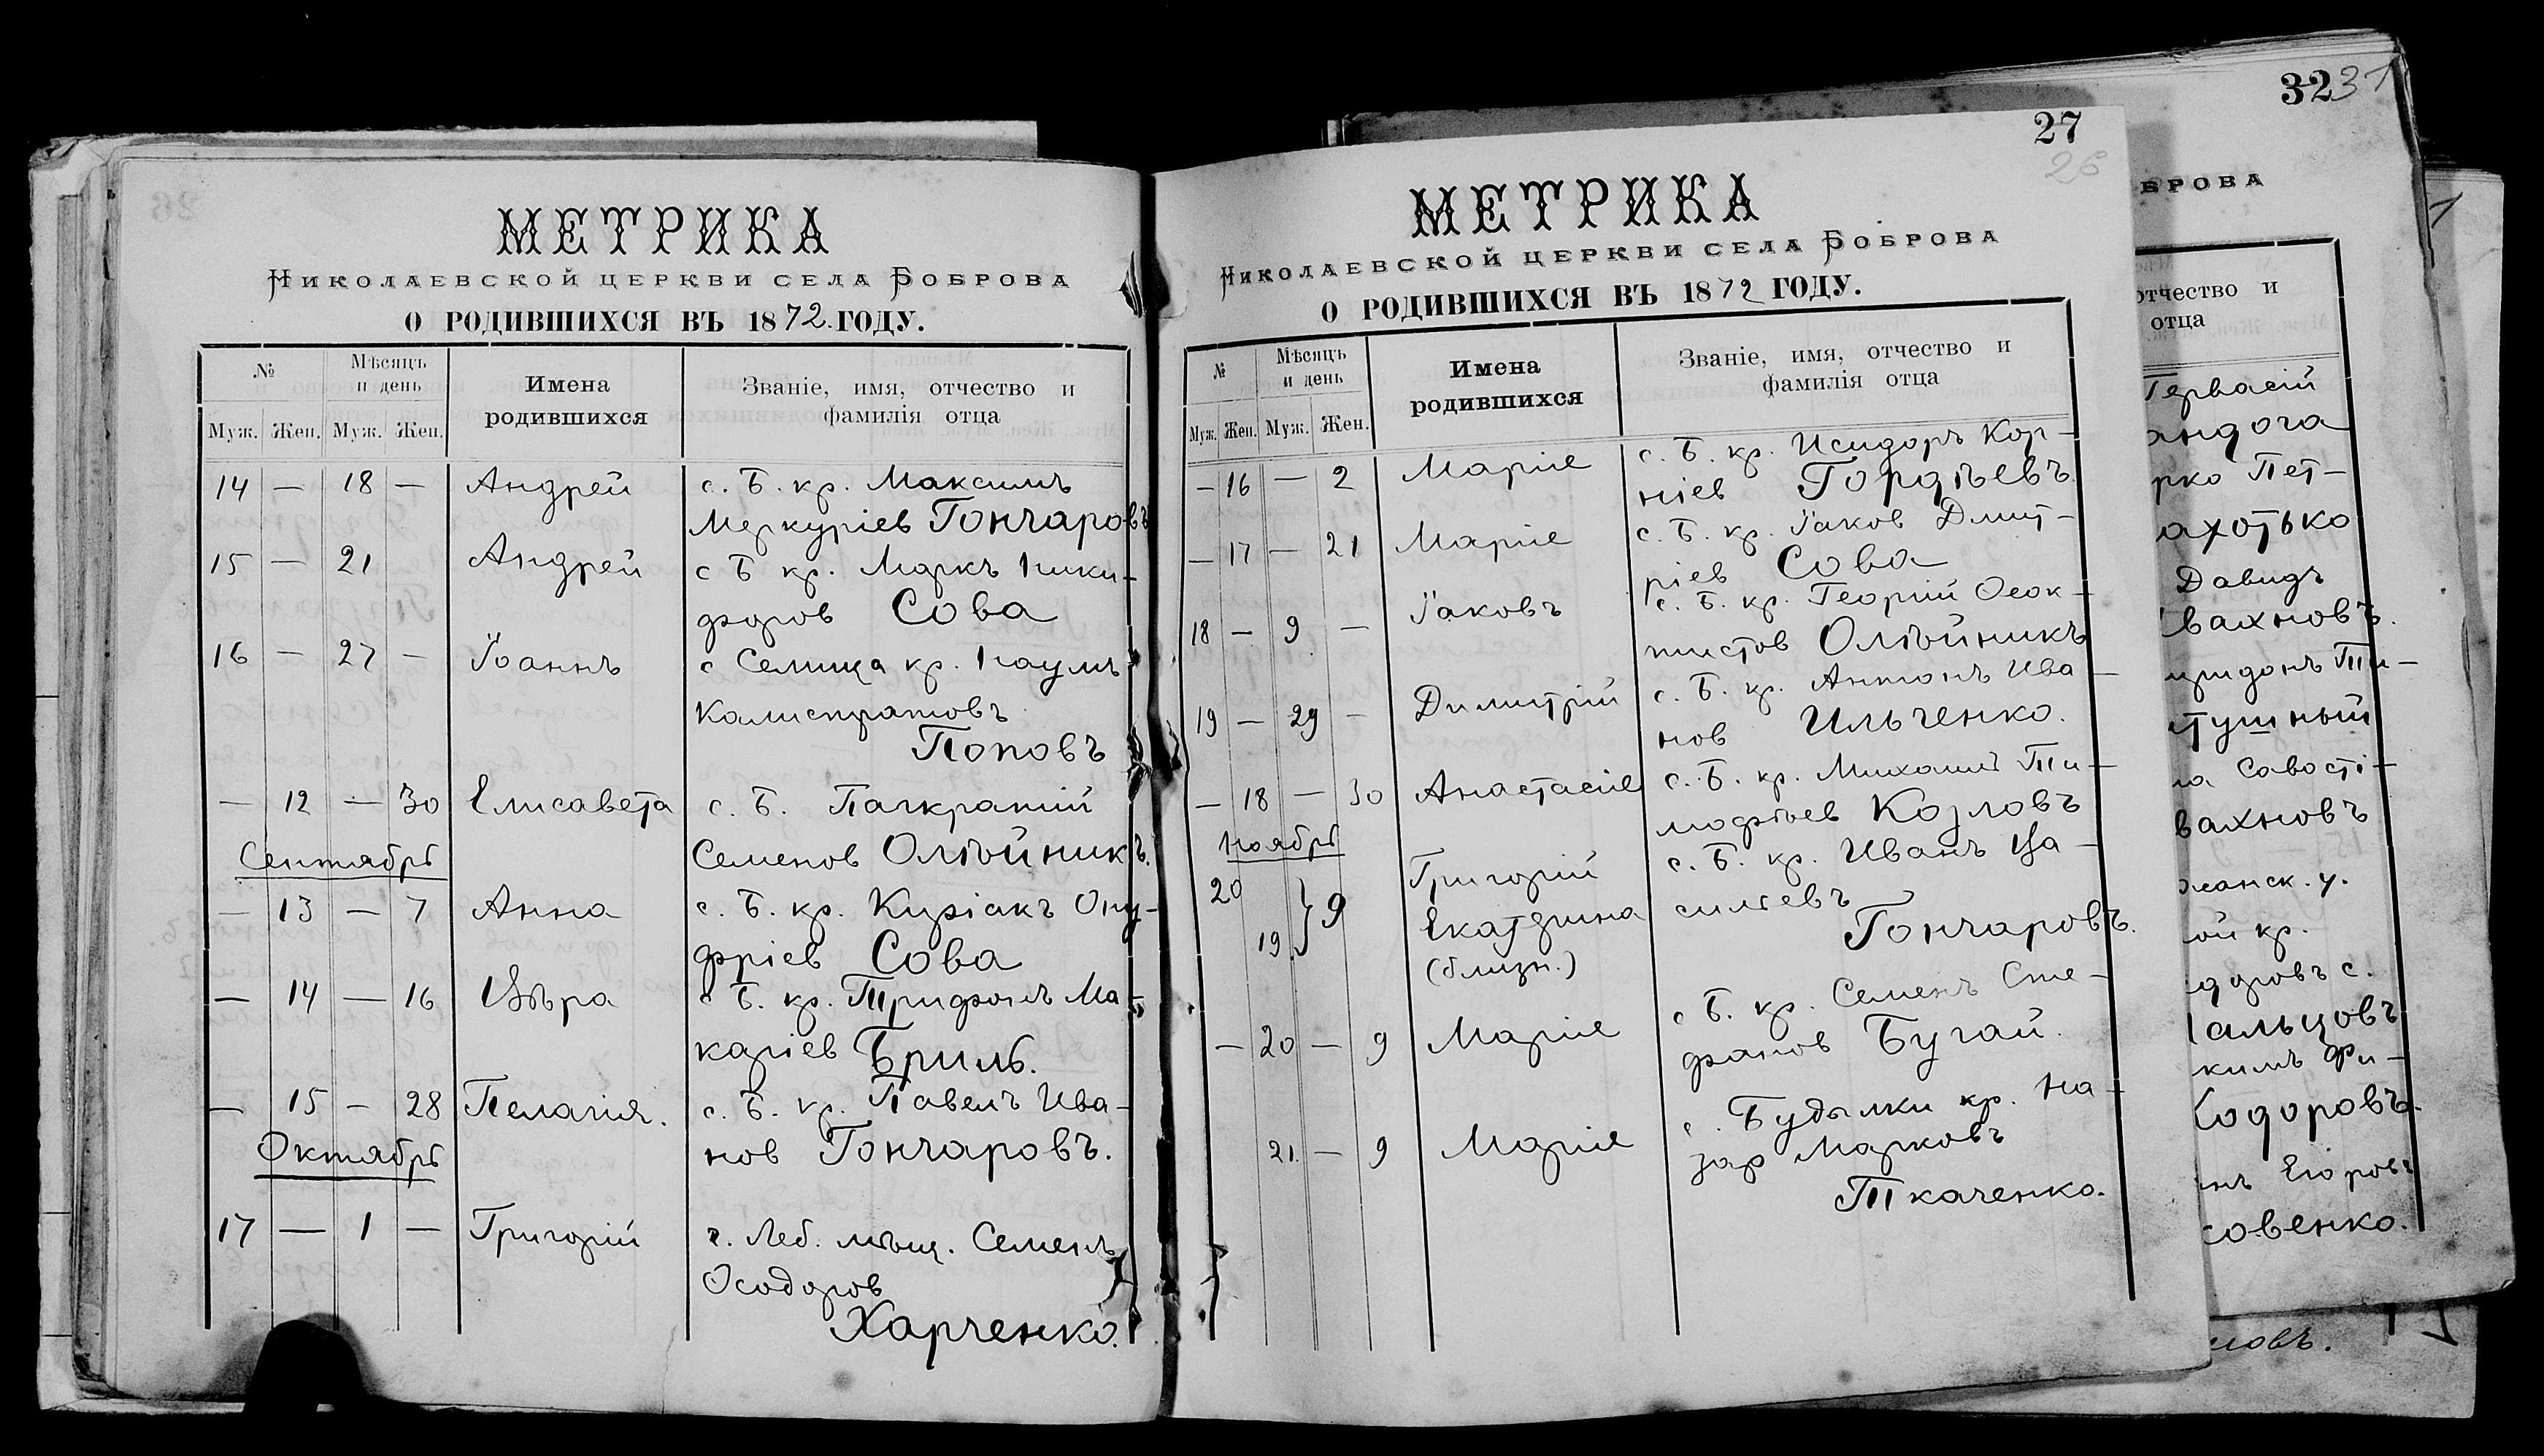 МЕТРИКА
Николаевской церкви села Боброва
О РОДИВШИХСЯ ВЪ 1872. ГОДУ.
№ Мѣсяцъ и день Имена родившихся Званіе, имя, отчество и фамилія отца
Муж. Жен. Муж. Жен.
14 — 18 — Андрей с. Б. кр. Максимъ
Меркуріев Гончаровъ
15 — 21 Андрей с Б кр. Маркъ Ники-
форов Сова
16 — 27 — Іоаннъ с Семица кр. Наумъ
Калистратовъ
Поповъ
— 12 — 30 Елисавета с. Б. Панкратій
Семенов Олѣйникъ.
Сентябрь
— 13 — 7 Анна с. Б. кр. Киріакъ Ону-
фріев Сова
— 14 — 16 Вѣра с Б. кр. Трифонъ Ма-
каріев Бриль.
— 15 — 28 Пелагія. с. Б. кр. Павелъ Ива-
нов Гончаровъ.
Октябрь
17 — 1 — Григорій г. Леб. мѣщ. Семенъ
Ѳеодоров
Харченко.
27
МЕТРИКА
Николаевской церкви села Боброва
О РОДИВШИХСЯ ВЪ 1872 ГОДУ.
№ Мѣсяцъ и день Имена родившихся Званіе, имя, отчество и фамилія отца
Муж. Жен. Муж. Жен.
— 16 — 2 Марія с. Б. кр. Исидоръ Кор-
ніев Гордѣевъ
— 17 — 21 Марія с. Б. кр. Іаков Дмит-
ріев Сова
18 — 9 — Іаковъ с. Б. кр. Георгій Ѳеок-
тистов Олѣйникъ
19 — 29 — Димитрій с. Б. кр. Антонъ Ива-
нов Ильченко.
— 18 — 30 Анастасія с. Б. кр. Михаилъ Ти-
мофѣев Козловъ
Ноябрь
20 } 9 Григорій с. Б. кр. Иванъ Ва-
19 Екатерина сильевъ
(близн.) Гончаровъ.
— 20 — 9 Марія с Б. кр. Семенъ Сте-
фанов Бугай.
21. — 9 Марія с. Будылки кр. На-
зар Марковъ
Ткаченко.
32 31
БРОВА
отчество и
отца
Гервасій
рко Пет-
ахотько
Давидъ
вахновъ.
Ти-
тушный
Савасті-
вахновъ
жанск. у.
ой кр.
доровъ с.
альцовъ
кимъ Фи-
Ходоровъ.
нъ Егоровъ
совенко.